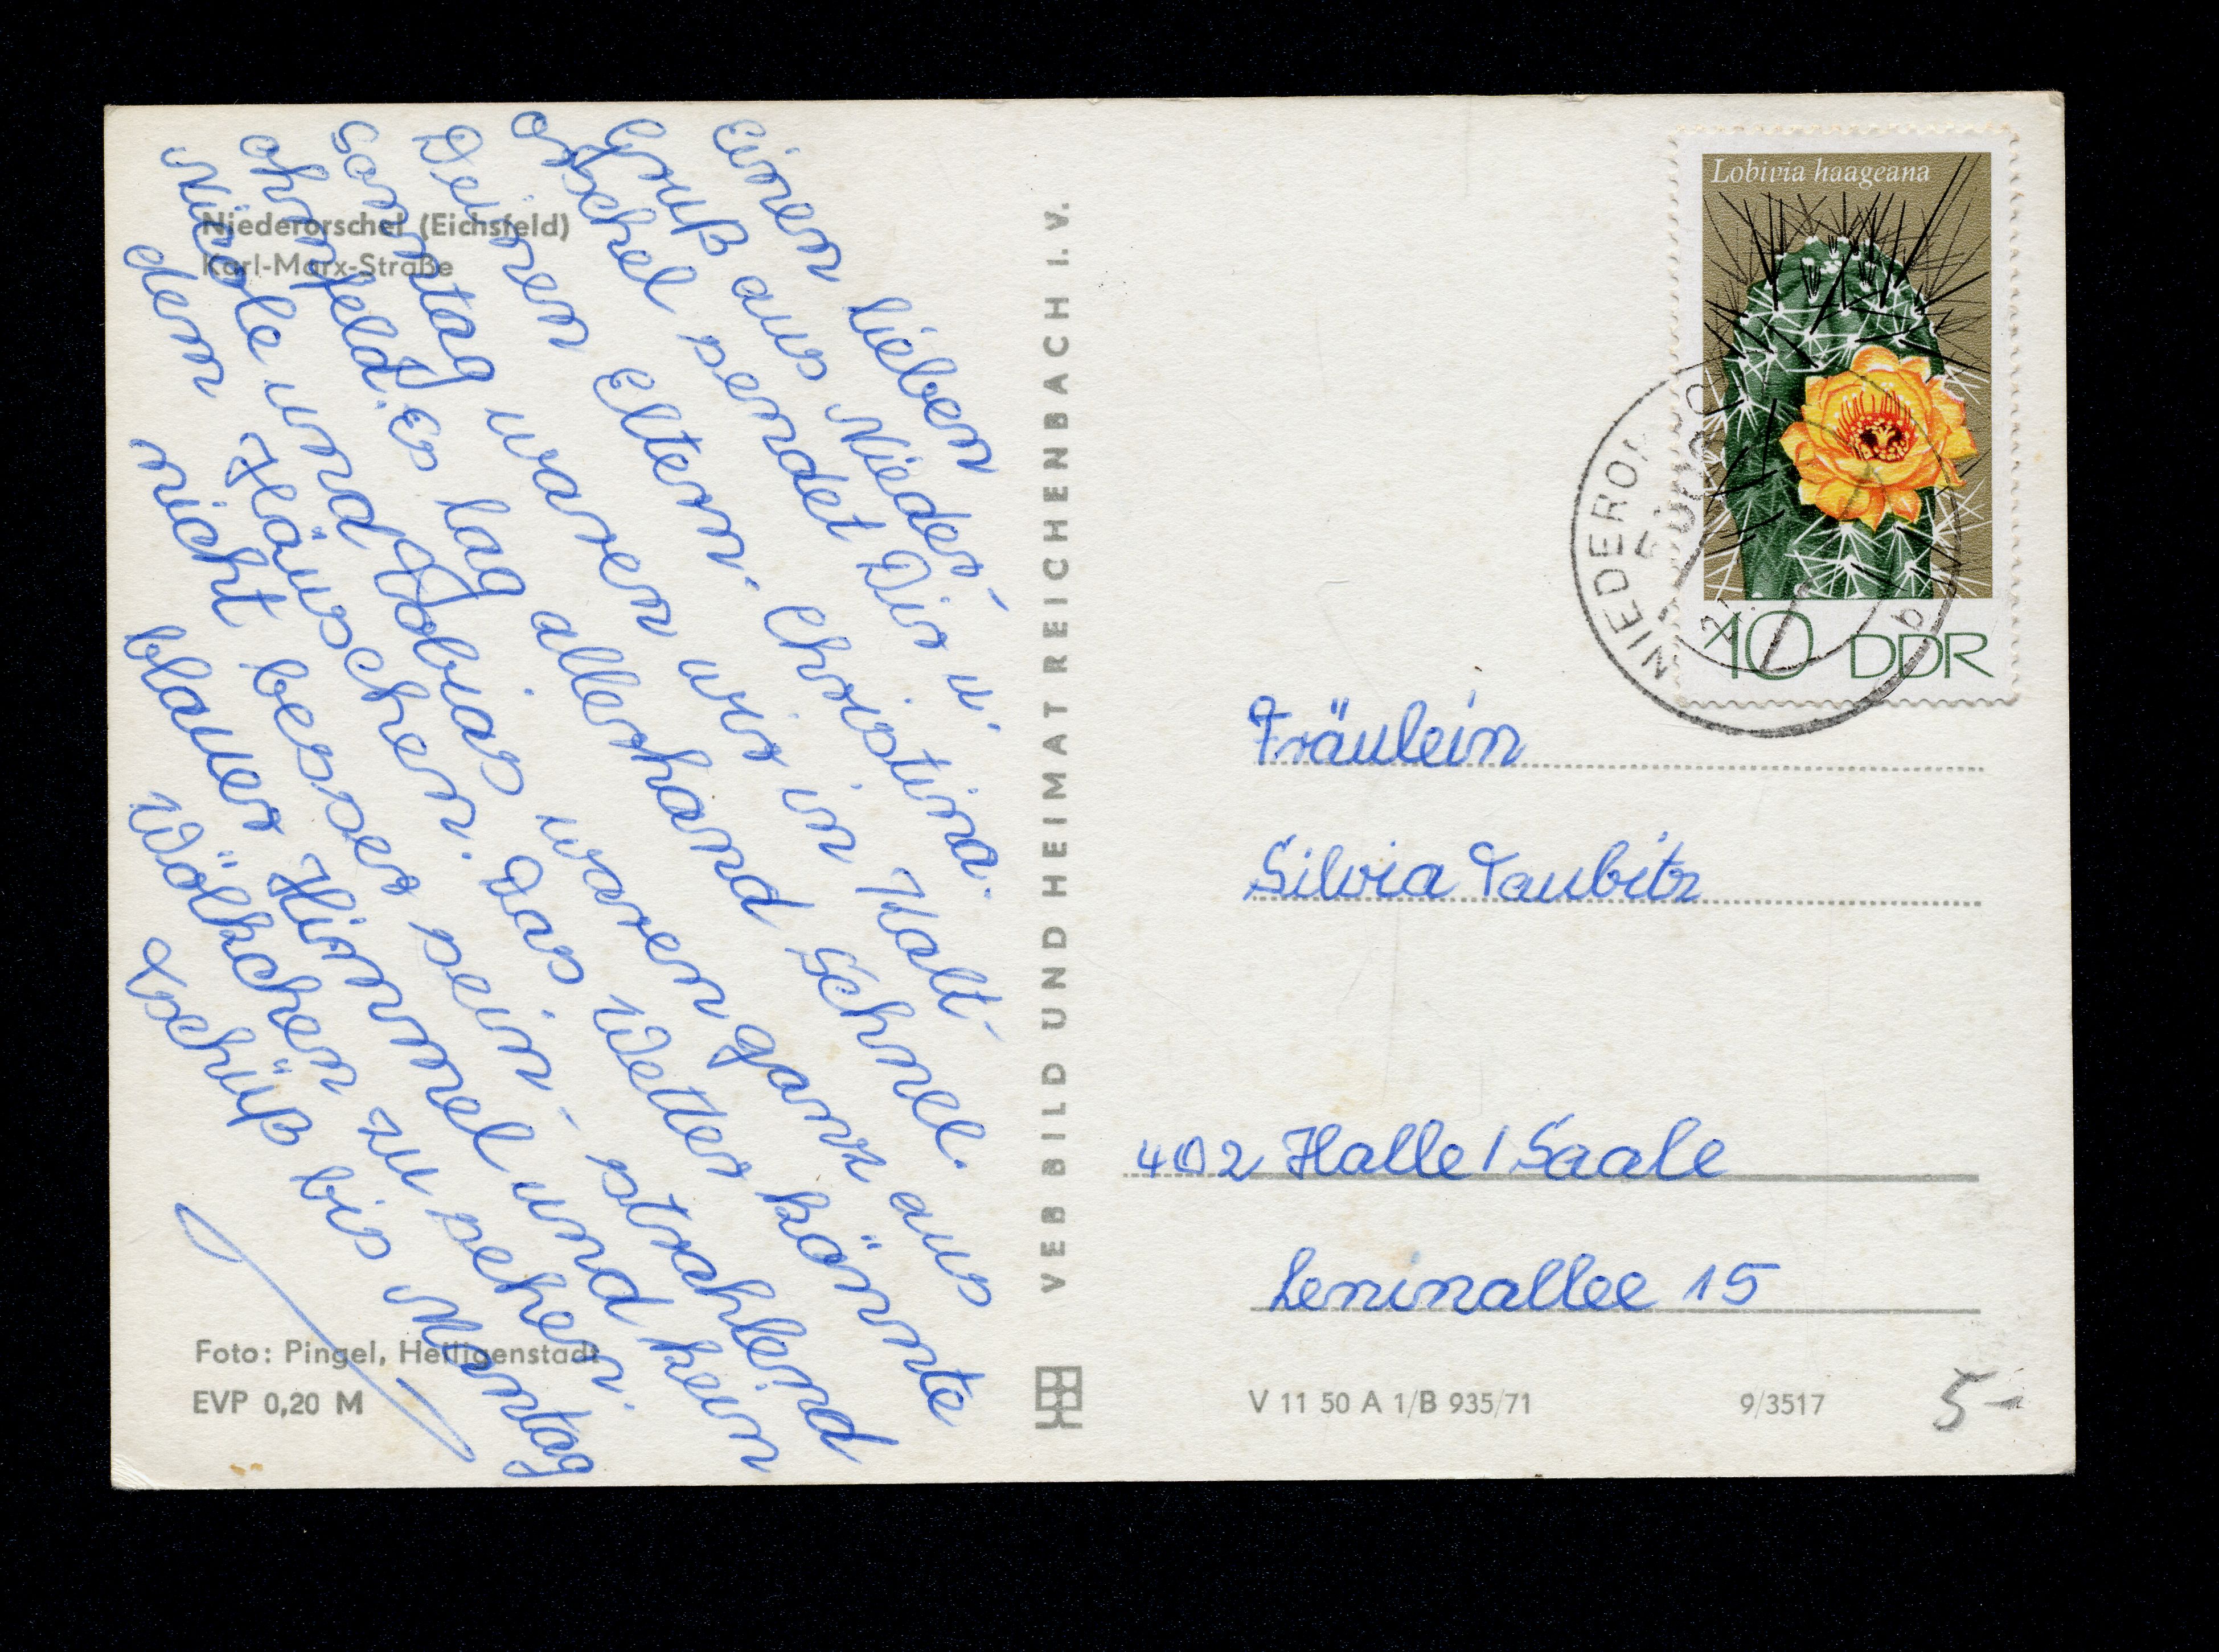 Niederorschel (Eichsfeld)
Karl-Marx-Straße
Einen lieben
Gruß aus Nieder-
orschel sendet Dir u.
Deinen Eltern. Christina.
Sonntag waren wir in Kalt-
ohmfeld. Es lag allerhand Schnee.
Nicole und Tobias waren ganz aus
dem Häuschen. Das Wetter könnte
nicht besser sein - strahlend
blauer Himmel und kein
Wölkchen zu sehen.
Tschüß bis Montag
Foto: Pingel, Heiligenstadt
EVP 0,20 M
VEB BILD UND HEIMAT REICHENBACH I. V.
Lobivia haageana
10 DDR
Fräulein
Silvia Taubitz
402 Halle / Saale
Leninallee 15
V 11 50 A 1/B 935/71
9/3517
5-